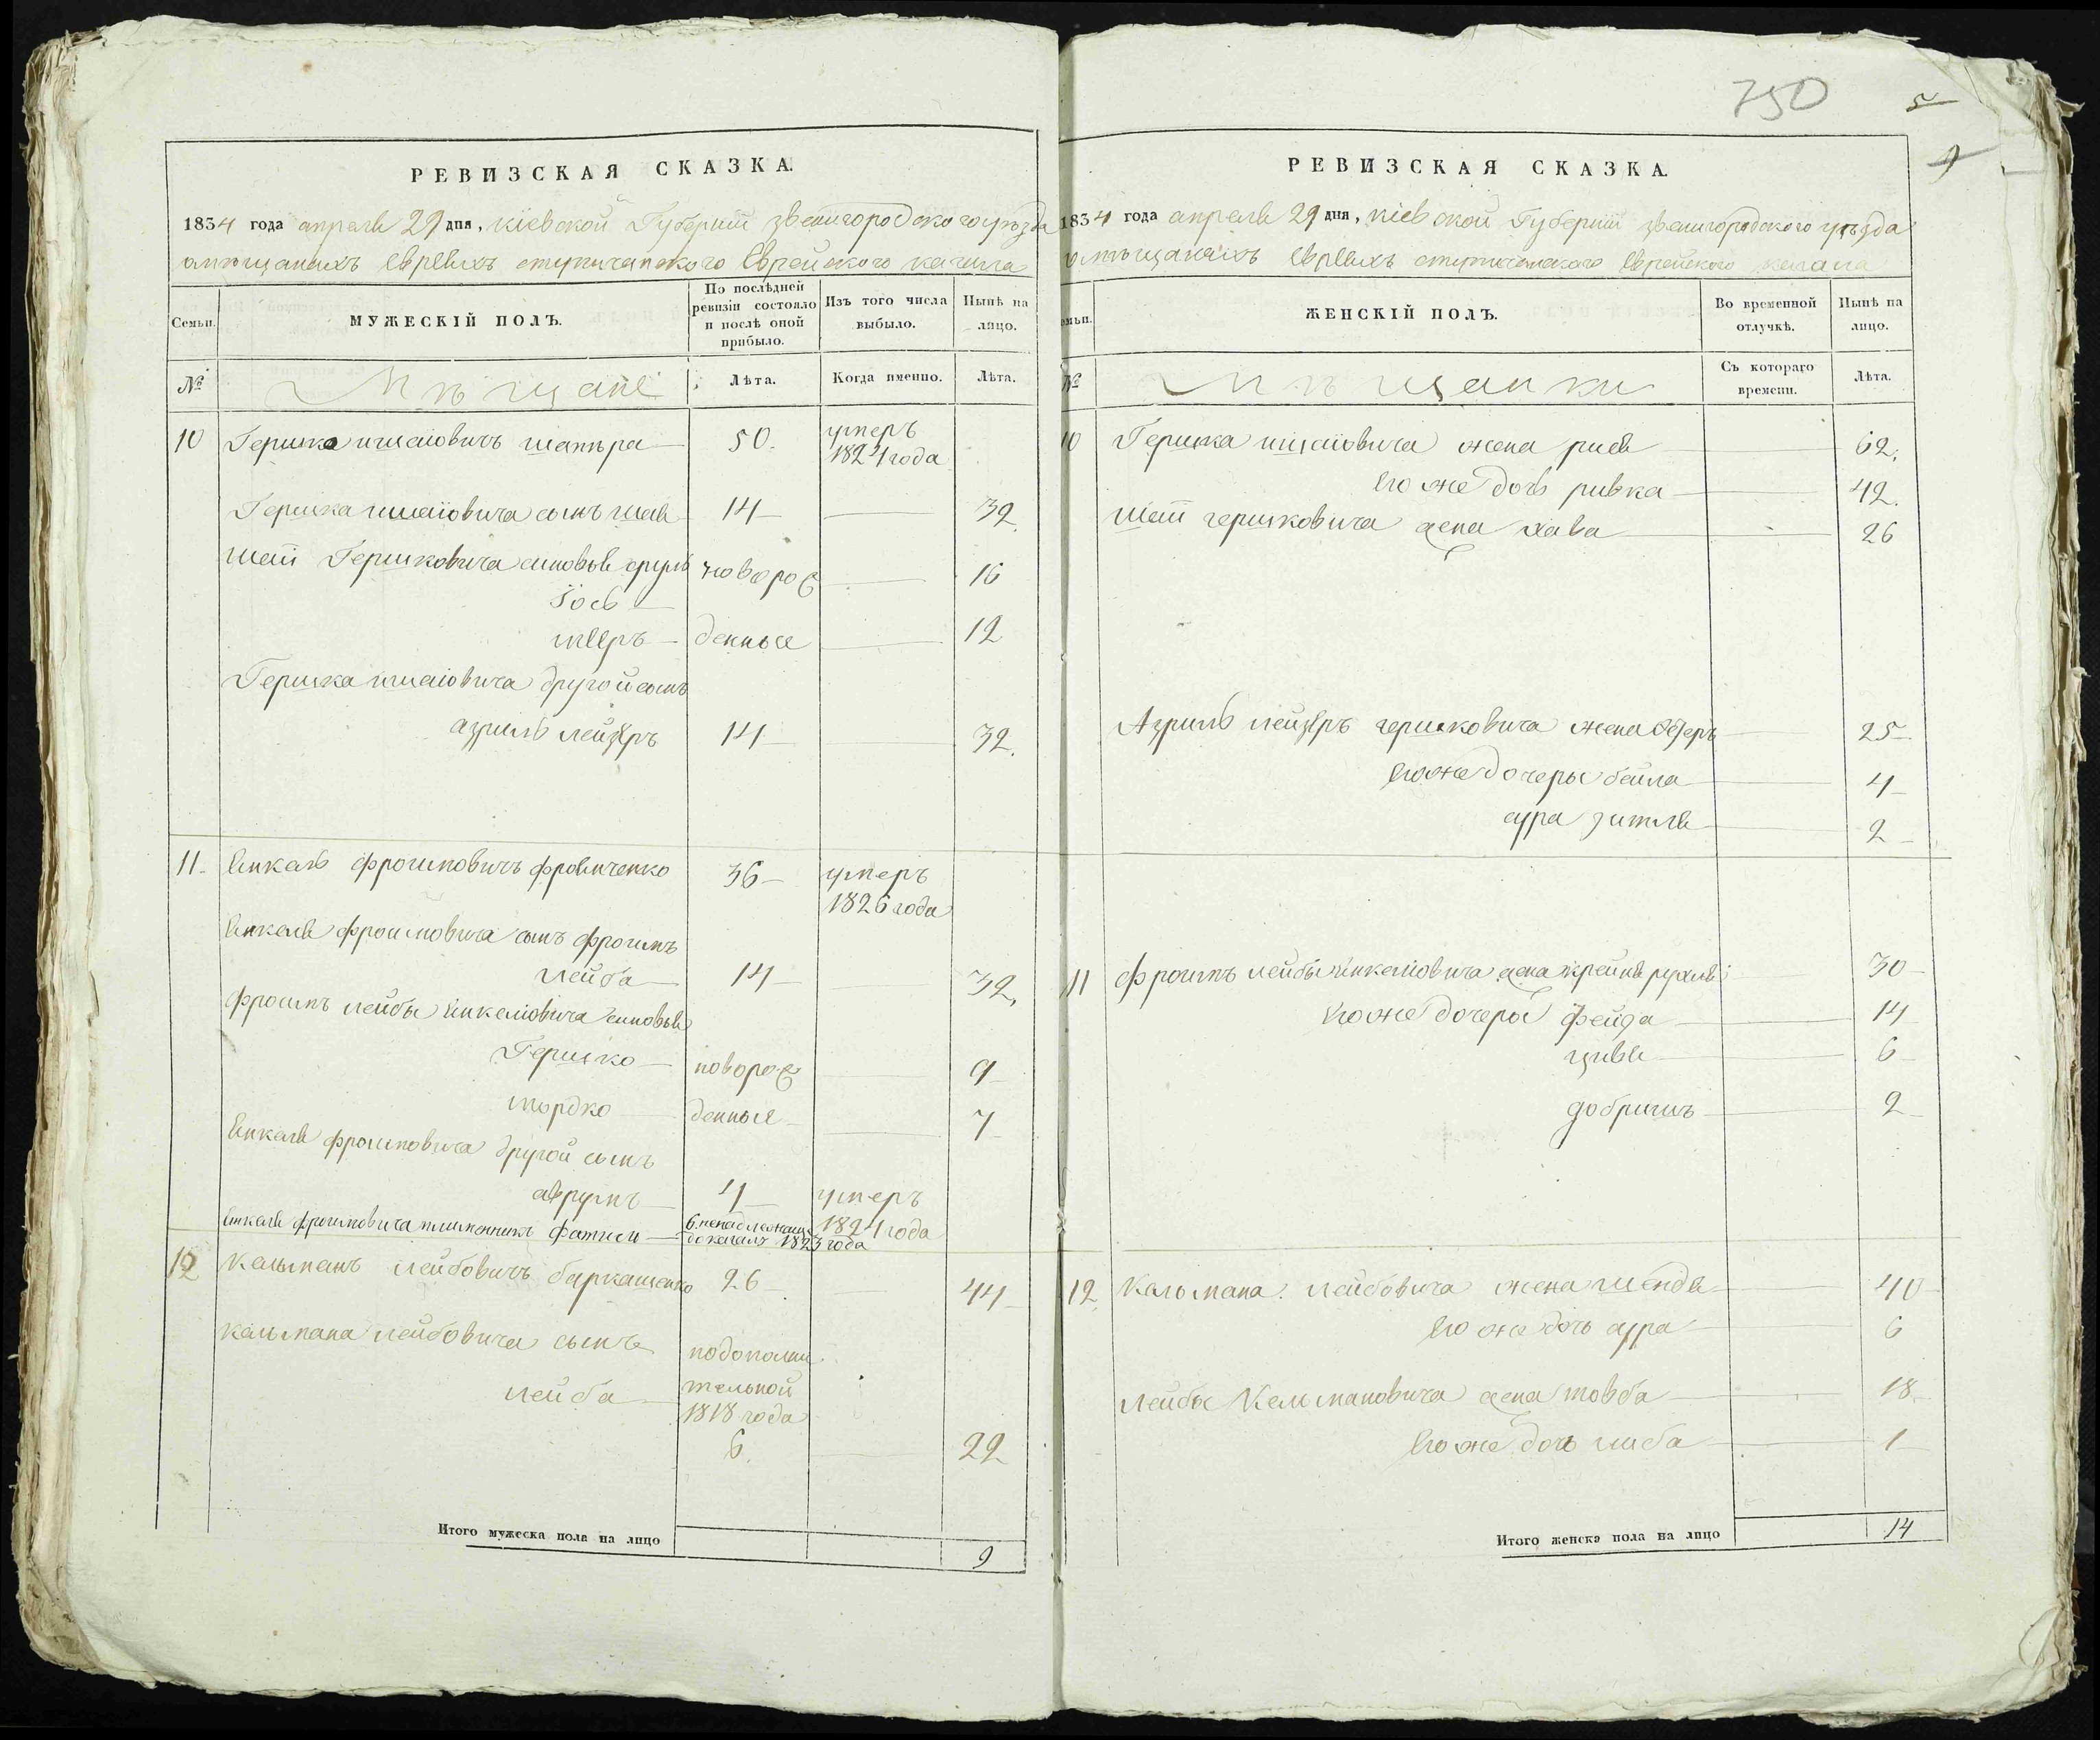 750
5
РЕВИЗСКАЯ СКАЗКА.
1834 года апреля 29 дня, Кіевской Губерніи Звенигородского уѣзда
омѣщанахъ Евреяхъ Еврейского кагала
Семьи.
МУЖЕСКІЙ ПОЛЪ.
По послѣдней ревизіи состояло и послѣ оной прибыло.
Изъ того числа выбыло.
Нынѣ на лицо.
№
Мѣщане
Лѣта.
Когда именно.
Лѣта.
10 Гершко шмаіовичъ 50. умеръ
1824 года
Гершка шмаіовича сынъ шая 14 32.
шаи Гершковича сыновья сруль новорож 16
Іось
мееръ денные 12
Гершка шмаіовича другой сынъ
азриль лейзеръ 14 32.
11. Янкель фроимовичъ 36 умеръ
1826 года
Янкеля фроимовича сынъ фроимъ
лейба 14 32.
фроимъ лейбы Янкеліовича сыновья
Гершко новорож 9
мордко денные 7
Янкеля фроимовича другой сынъ
аврумъ 4 умеръ
1824 года
Янкеля фроимовича племенникъ 6.
1823 года
12 Кальманъ лейбовичъ 26 44
Кальмана лейбовича сынъ подополни
лейба тельной
1818 года
6. 22
Итого мужеска пола на лицо 9
РЕВИЗСКАЯ СКАЗКА.
1834 года апреля 29 дня, Кіевской Губерніи Звенигородского уѣзда
омѣщанахъ Евреяхъ Еврейского кагала
Семьи.
ЖЕНСКІЙ ПОЛЪ.
Во временной отлучкѣ.
Нынѣ на лицо.
№
Мѣщанки
Съ котораго времени.
Лѣта.
10 Гершка шмаіовича жена рися 62.
его же дочь ривка 42.
шаи гершковича жена хава 26
Азриль лейзеръ гершковича жена 25
его же дочеры бейла 4
сура зитля 2
11 фроимъ лейбы Янкеліовича жена рухля 30
его же дочеры фейга 14
цивя 6
добришъ 2
12. Кальмана лейбовича жена шейндя 40
его же дочь сура 6
лейбы Кальмановича жена товба 18
его же дочь либа 1
Итого женска пола на лицо 14